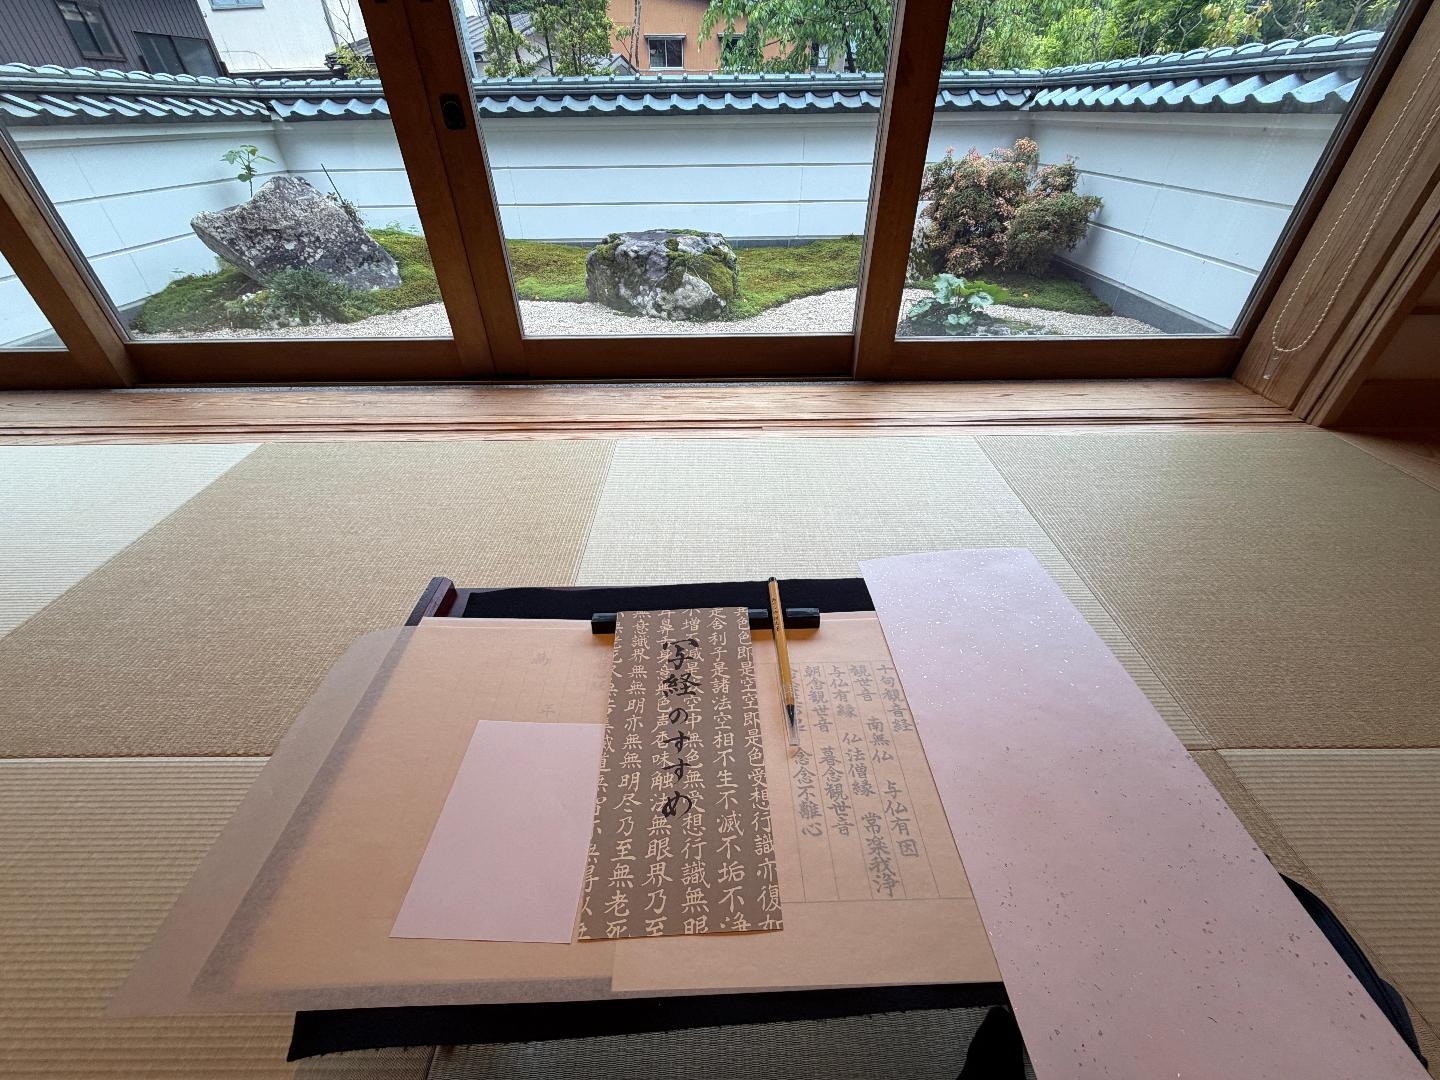 写経のすすめ
異色色即是空空即是色受想行識亦復如
是舎利子是諸法空相不生不滅不垢不浄
不増不減是故空中無色無受想行識無眼
耳鼻舌身意無色声香味触法無眼界乃至
無意識界無無明亦無無明尽乃至無老死
十句観音経
観世音 南無仏 与仏有因
与仏有縁 仏法僧縁 常楽我浄
朝念観世音 暮念観世音
念念不離心
為
年